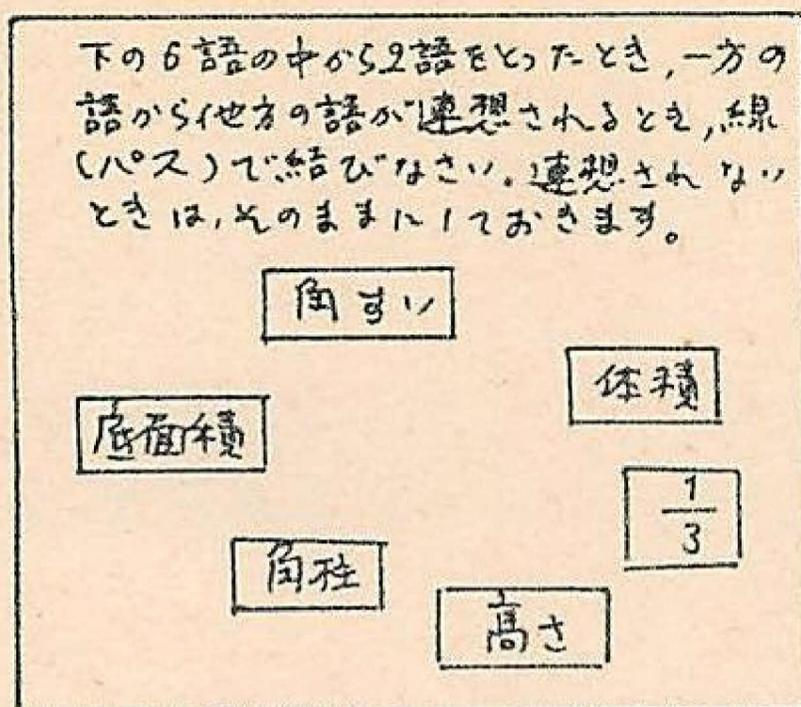 下の6語の中から2語をとったとき,一方の
語から他方の語が連想されるとき,線
(パス)で結びなさい.連想されない
ときは,そのままにしておきます。
角すい
体積
底面積
1/3
角柱
高さ